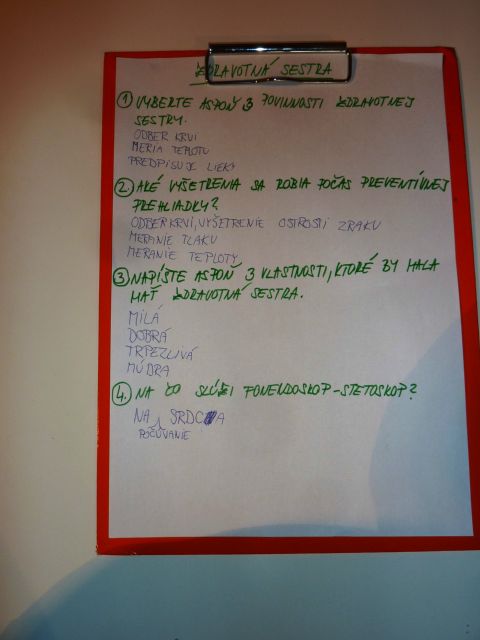 ZDRAVOTNÁ SESTRA
1 VYBERTE ASPOŇ 3 POVINNOSTI ZDRAVOTNEJ
SESTRY.
ODBER KRVI
MERIA TEPLOTU
PREDPISUJE LIEKY
2 AKÉ VYŠETRENIA SA ROBIA POČAS PREVENTÍVNEJ
PREHLIADKY?
ODBER KRVI, VYŠETRENIE OSTROSTI ZRAKU
MERANIE TLAKU
MERANIE TEPLOTY
3 NAPÍŠTE ASPOŇ 3 VLASTNOSTI, KTORÉ BY MALA
MAŤ ZDRAVOTNÁ SESTRA.
MILÁ
DOBRÁ
TRPEZLIVÁ
MÚDRA
4. NA ČO SLÚŽI FONENDOSKOP-STETOSKOP?
NA SRDCA
POČÚVANIE